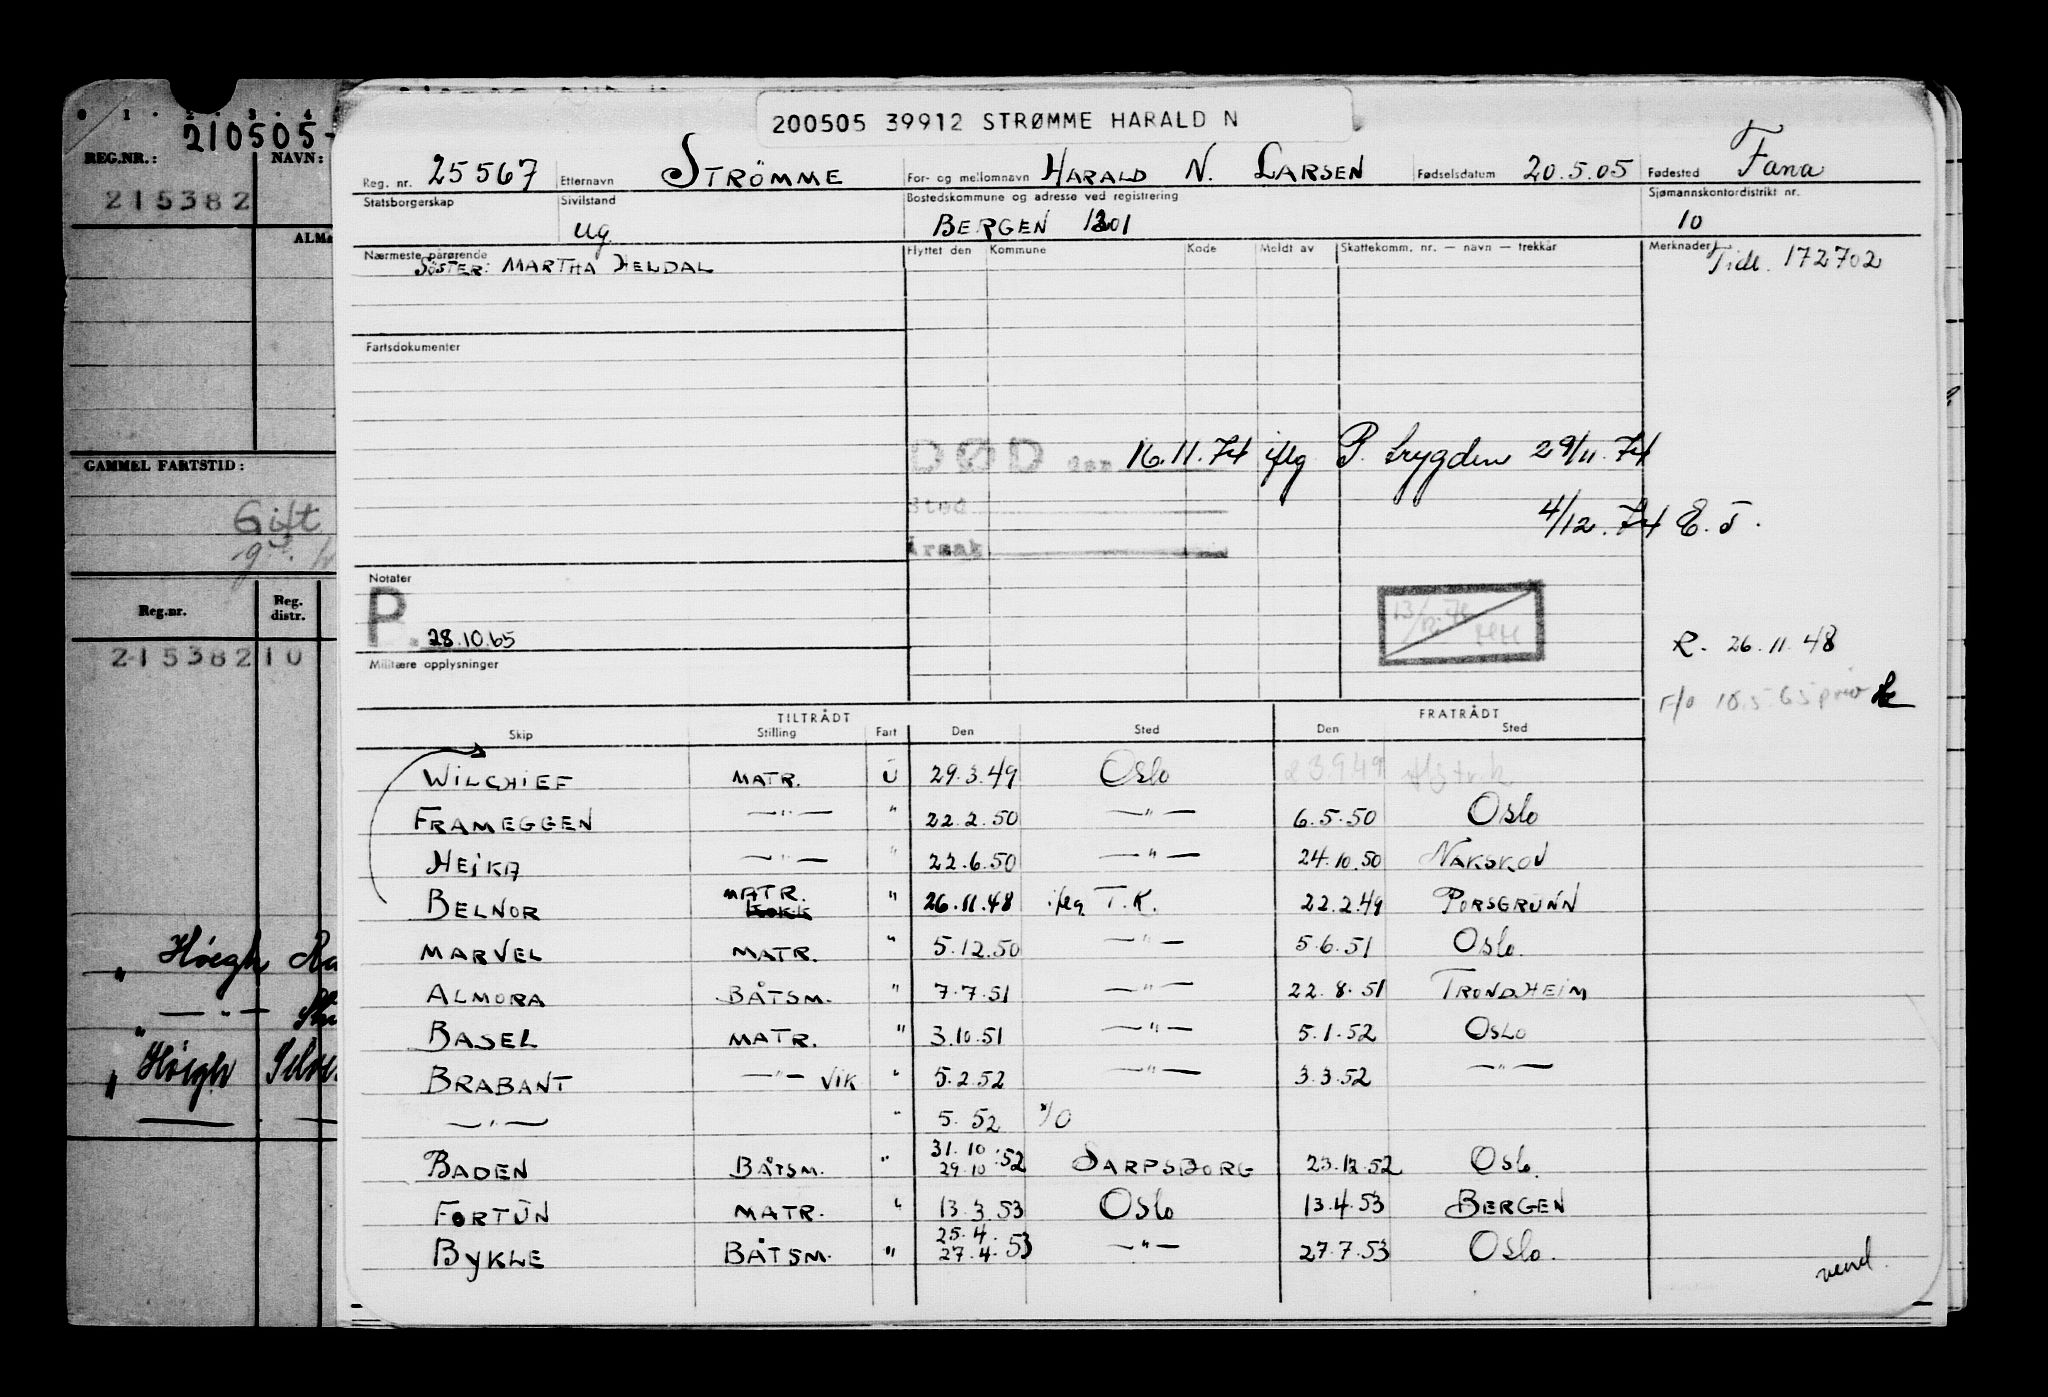 0 1 . 2 . 3 . 4
210505-
REG.NR.: NAVN:
215382
GAMMEL FARTSTID:
Gift
Reg.nr. Reg. distr.
215382 10
" Høegh
" —"— 
" Høegh
200505 39912 STRØMME HARALD N
Reg. nr. 25567 Etternavn STRÖMME For- og mellomnavn HARALD N. LARSEN Fødselsdatum 20.5.05 Fødested Fana
Statsborgerskap Sivilstand Bostedskommune og adresse ved registrering Sjømannskontordistrikt nr.
ug. BERGEN 1301 10
Nærmeste pårørende Flyttet den Kommune Kode Meldt av Skattekomm. nr. — navn — trekkår Merknader
SÖSTER: MARTHA HELDAL Tidl. 172702
Fartsdokumenter
DØD den 16.11.74 iflg P. trygden 29/11.74
Sted 4/12.74 E.T.
Årsak
Notater
P. 28.10.65
R. 26.11.48
Militære opplysninger
F/O 18.5.65
TILTRÅDT FRATRÅDT
Skip Stilling Fart Den Sted Den Sted
WILCHIEF MATR. U 29.3.49 Oslo 23949
FRAMEGGEN —"— " 22.2.50 —"— 6.5.50 Oslo
HEIKA —"— " 22.6.50 —"— 24.10.50 NAKSKOV
BELNOR MATR. KOKK " 26.11.48 iflg T.K. 22.2.49 PORSGRUNN
MARVEL MATR. " 5.12.50 —"— 5.6.51 Oslo.
ALMORA BÅTSM. " 7.7.51 —"— 22.8.51 TRONDHEIM
BASEL MATR. " 3.10.51 —"— 5.1.52 OSLO
BRABANT —"— VIK " 5.2.52 —"— 3.3.52 —"—
—"— " 5.52 F/O
BADEN BÅTSM. " 31.10 29.10.52 SARPSBORG 23.12.52 Oslo.
FORTUN MATR. " 13.3.53 Oslo 13.4.53 BERGEN
BYKLE BÅTSM. " 25.4. 27.4.53 —"— 27.7.53 Oslo.
vend.